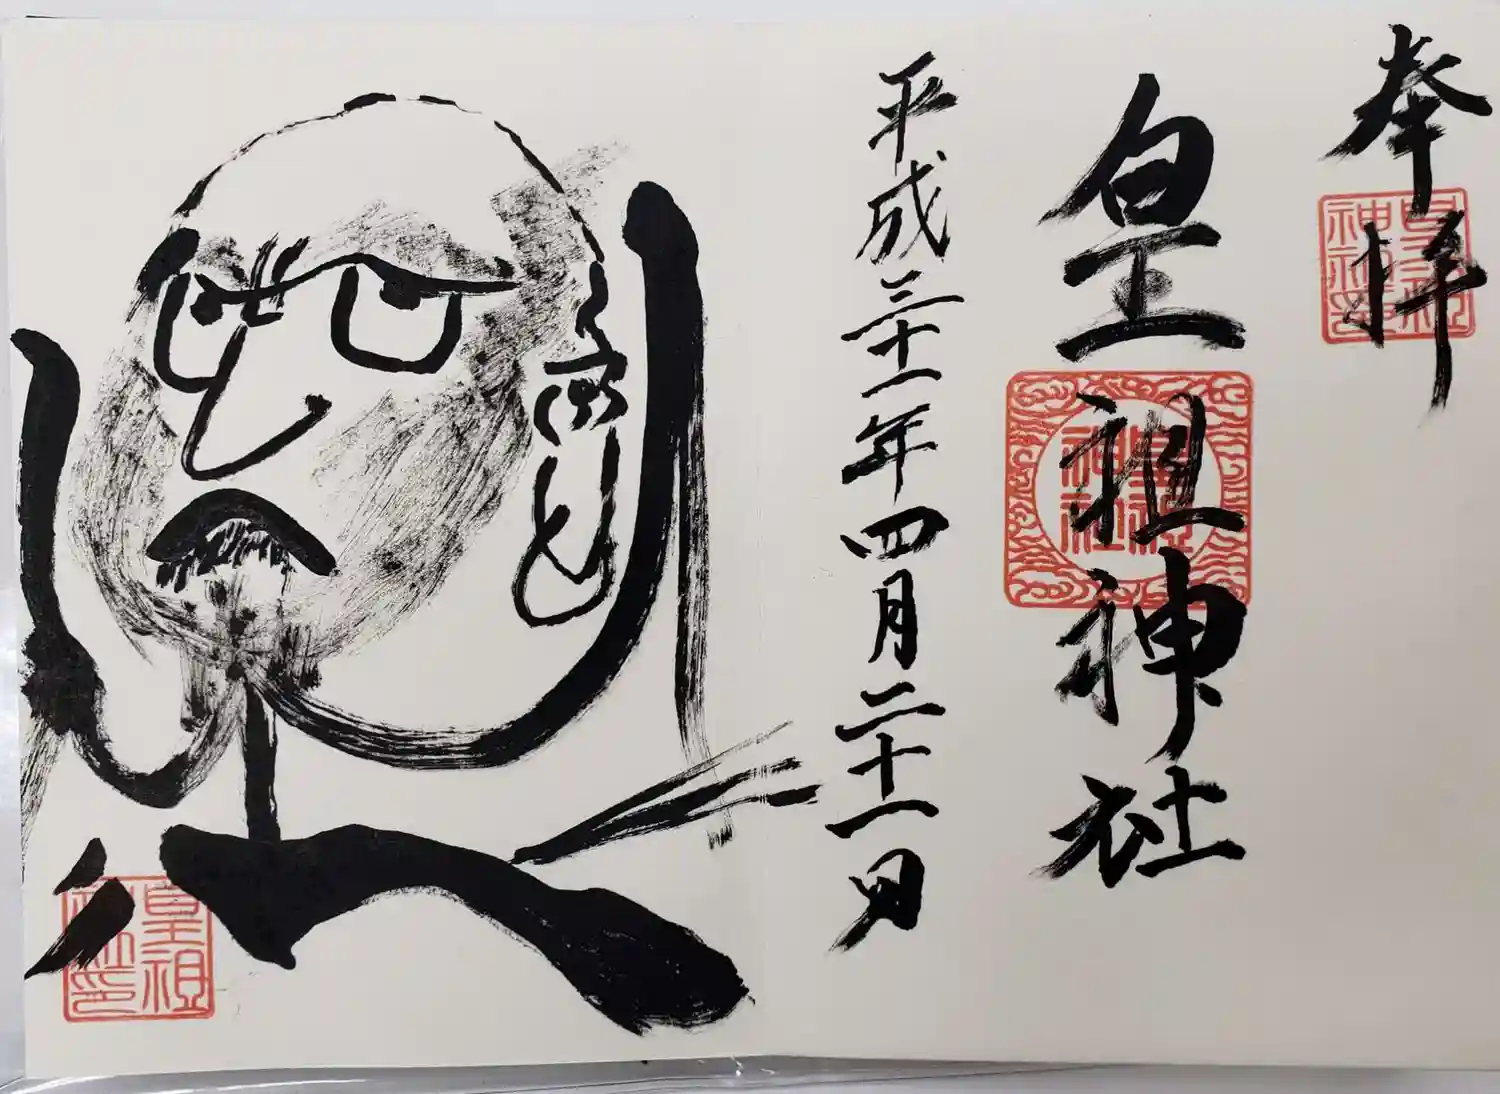 奉拝
皇祖神社
平成三十一年四月二十一日
皇祖神社
皇祖神社印
皇祖神社印